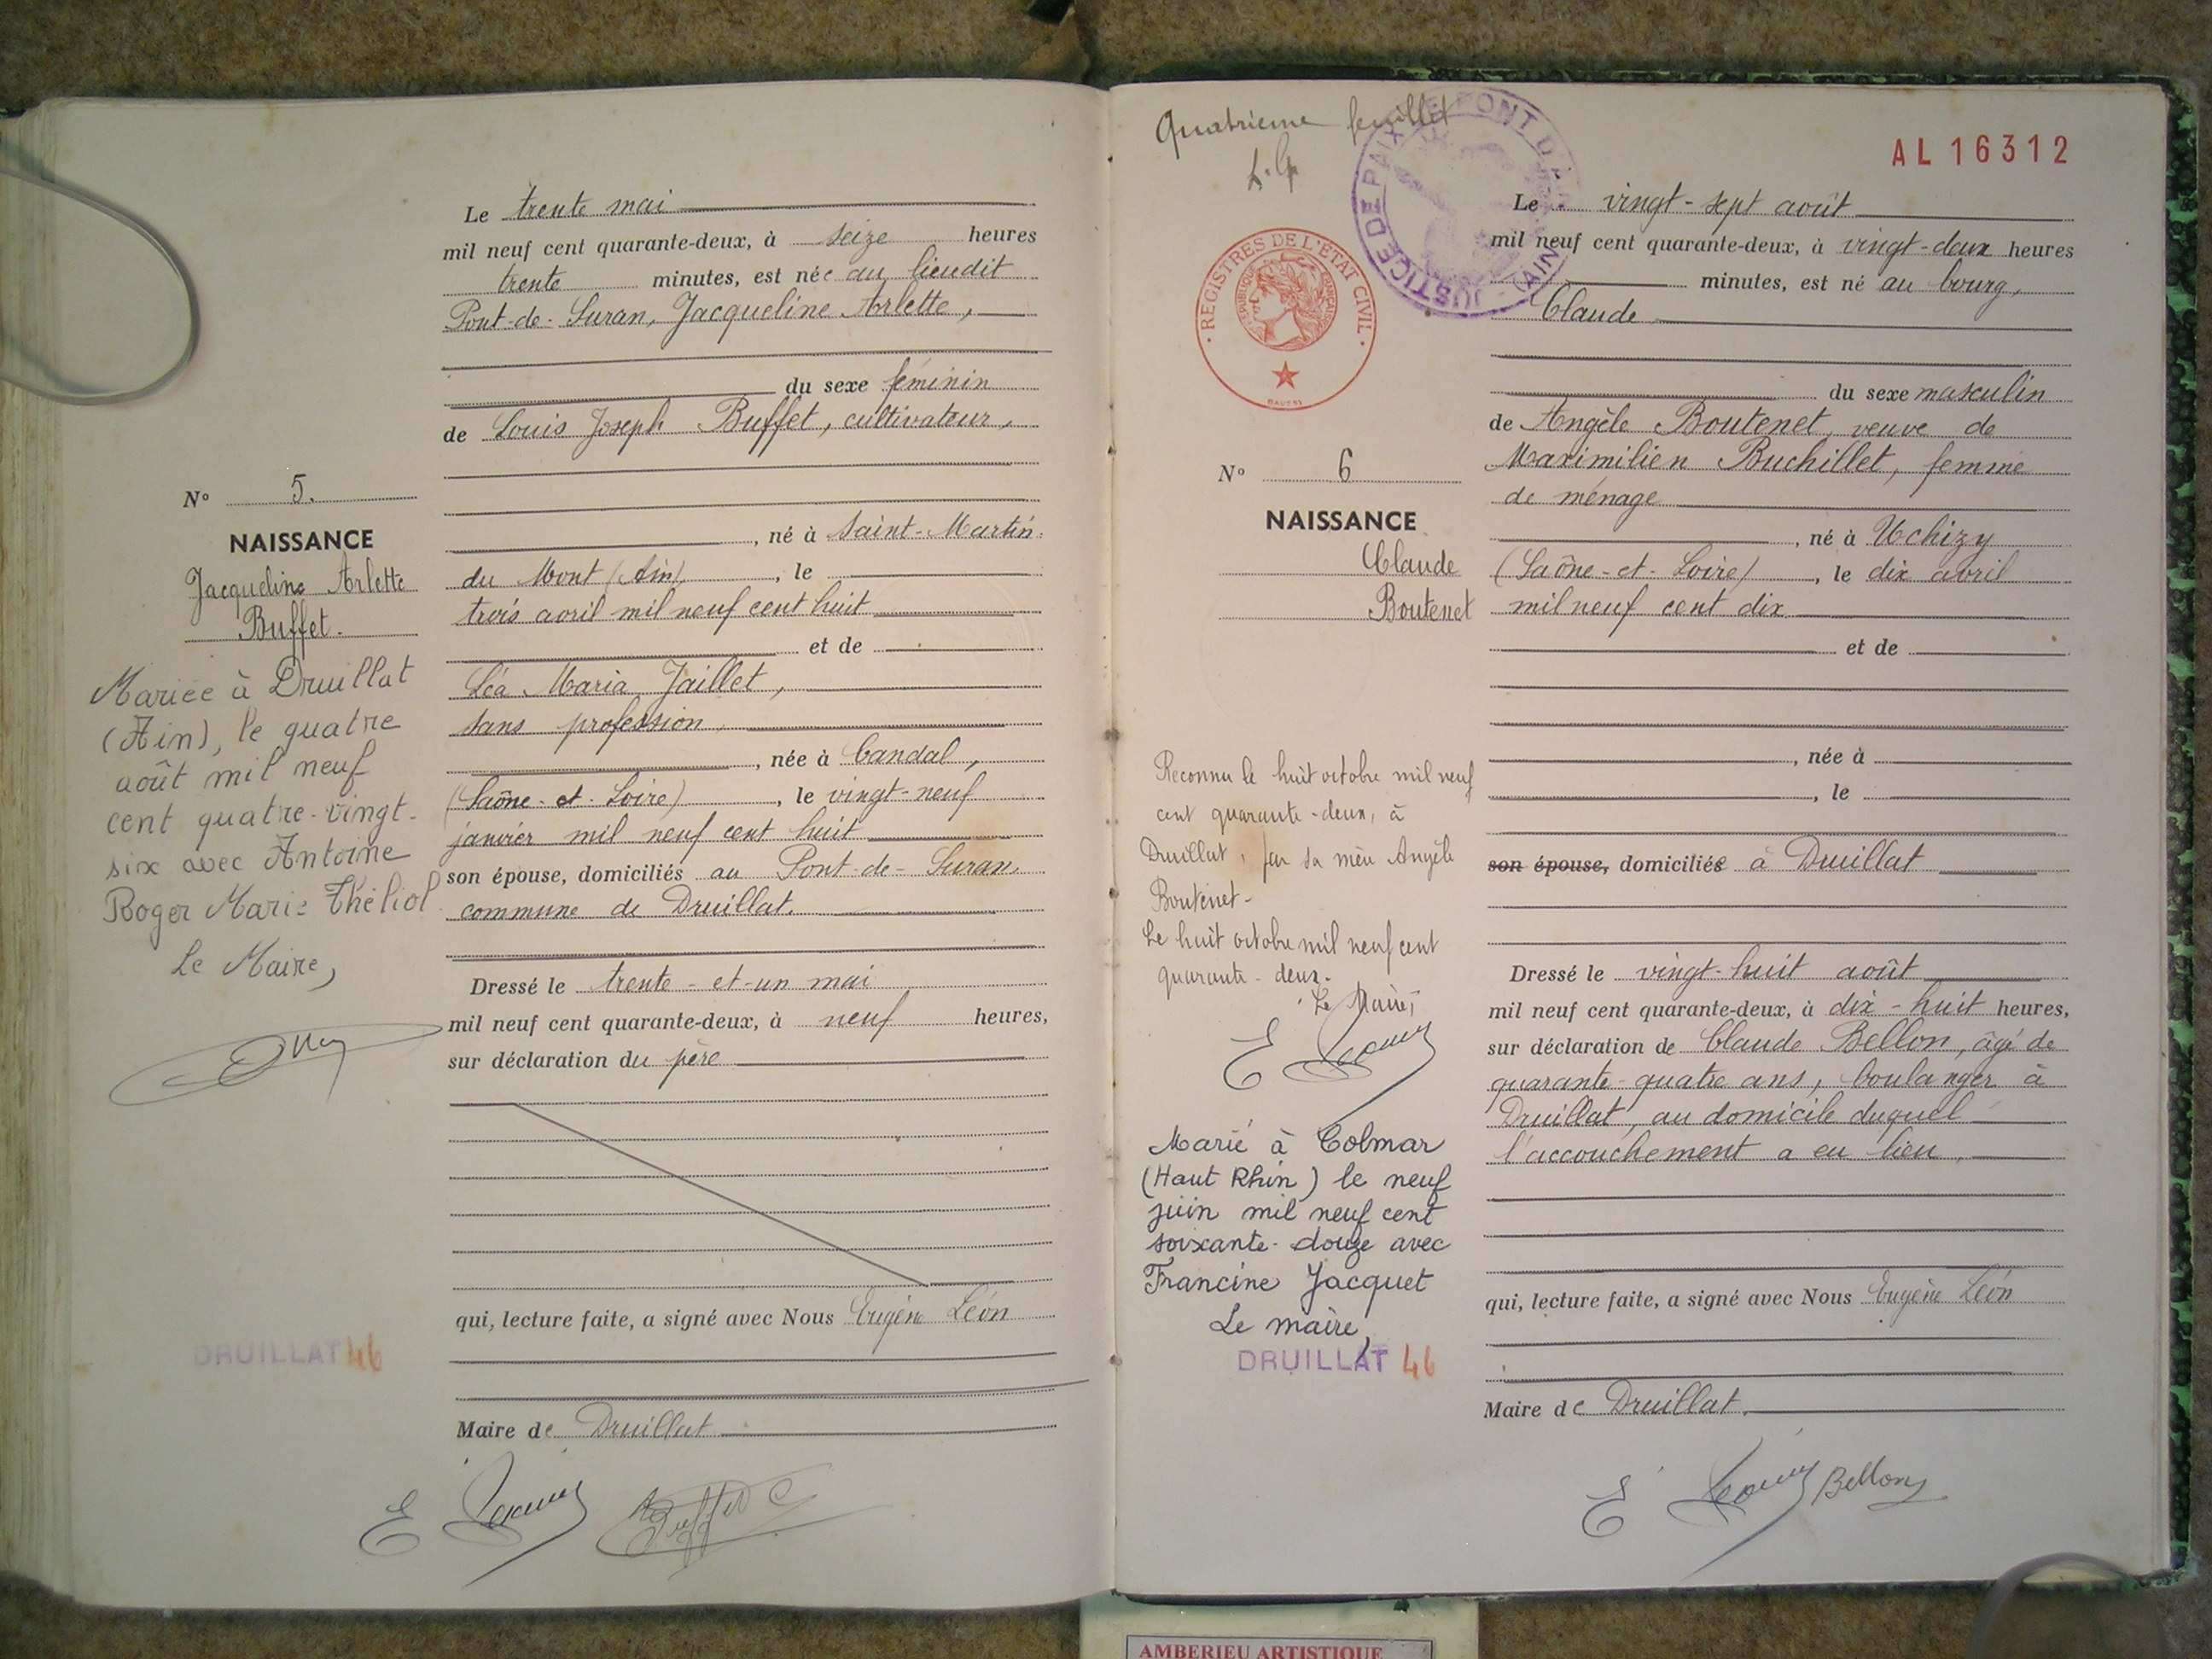 Le trente mai
mil neuf cent quarante-deux, à seize heures
trente minutes, est née au lieudit
Pont-de-Suran, Jacqueline Arlette,
du sexe féminin
de Louis Joseph Buffet, cultivateur,
, né à Saint-Martin-
du Mont (Ain), le
trois avril mil neuf cent huit
et de
Léa Maria Jaillet,
sans profession
, née à Condal,
(Saône-et-Loire), le vingt-neuf
janvier mil neuf cent huit
son épouse, domiciliés au Pont-de-Suran,
commune de Druillat.
Dressé le trente-et-un mai
mil neuf cent quarante-deux, à neuf heures,
sur déclaration du père
qui, lecture faite, a signé avec Nous Eugène Léon
Maire de Druillat
N° 5.
NAISSANCE
Jacqueline Arlette
Buffet.
Mariée à Druillat
(Ain), le quatre
août mil neuf
cent quatre-vingt-
six avec Antoine
Roger Marie Théliol
Le Maire,
DRUILLAT 46
Quatrième feuillet
JUSTICE DE PAIX DE PONT D'AIN (AIN)
AL 16312
REGISTRES DE L'ETAT CIVIL
Le vingt-sept août
mil neuf cent quarante-deux, à vingt-deux heures
minutes, est né au bourg,
Claude
du sexe masculin
de Angèle Boutenet, veuve de
Maximilien Buchillet, femme
de ménage
, né à Uchizy
(Saône-et-Loire), le dix avril
mil neuf cent dix
et de
, née à
, le
son épouse, domiciliée à Druillat
Dressé le vingt-huit août
mil neuf cent quarante-deux, à dix-huit heures,
sur déclaration de Claude Bellon, âgé de
quarante-quatre ans, boulanger à
Druillat, au domicile duquel
l'accouchement a eu lieu,
qui, lecture faite, a signé avec Nous Eugène Léon
Maire de Druillat.
Bellon
N° 6
NAISSANCE
Claude
Boutenet
Reconnu le huit octobre mil neuf
cent quarante-deux, à
Druillat, par sa mère Angèle
Boutenet-
Le huit octobre mil neuf cent
quarante-deux.
Le Maire,
Marié à Colmar
(Haut Rhin) le neuf
juin mil neuf cent
soixante-douze avec
Francine Jacquet
Le maire,
DRUILLAT 46
AMBERIEU ARTISTIQUE